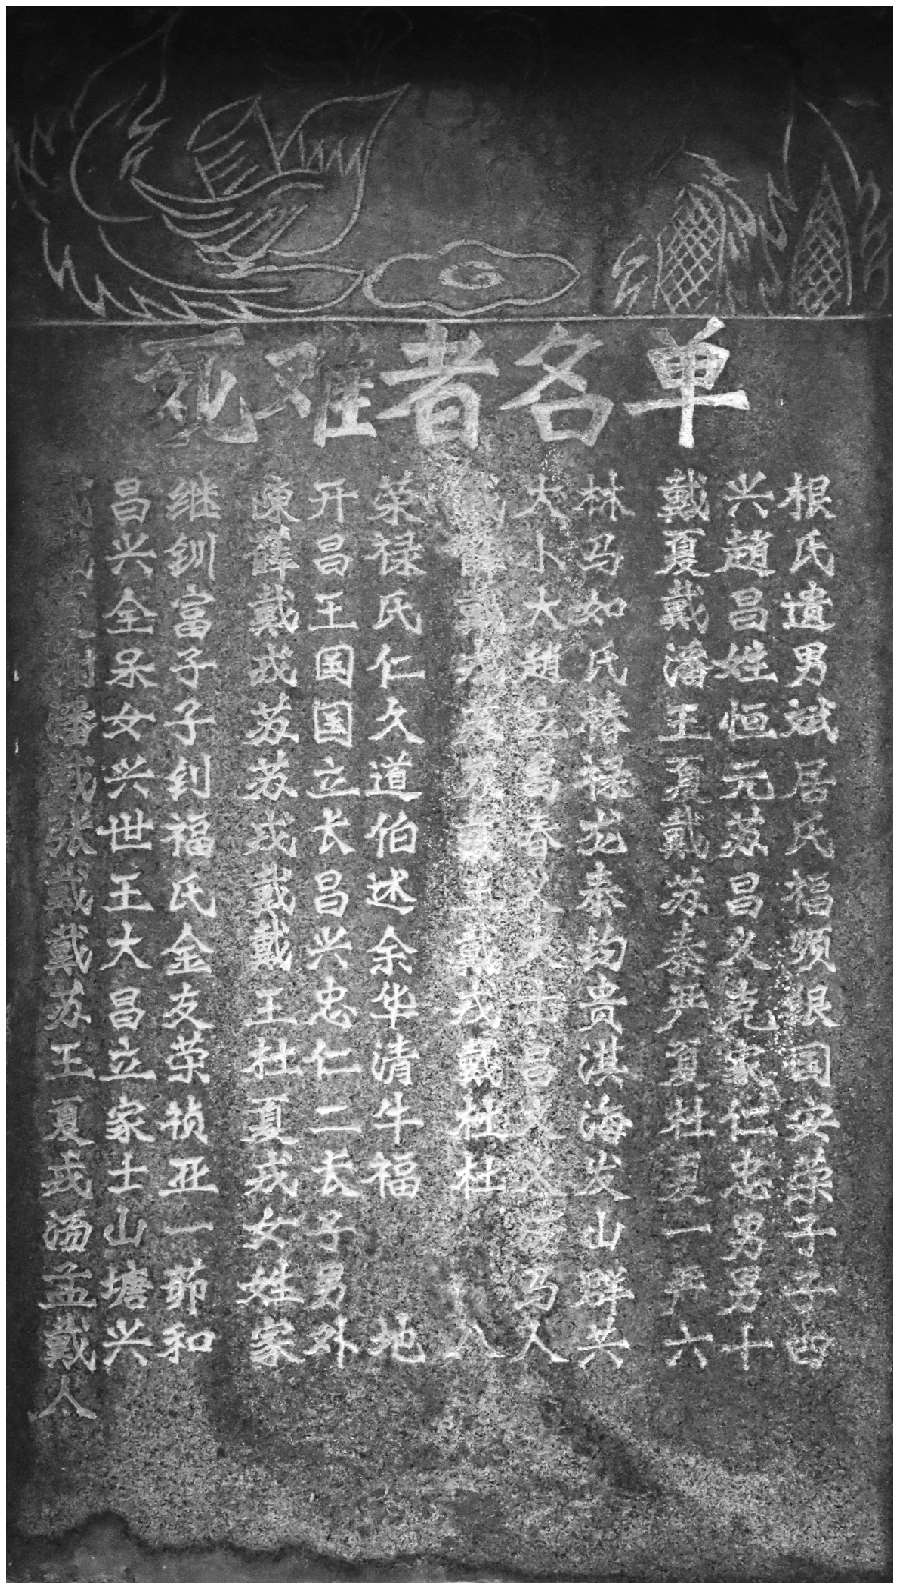 死难者名单
昌继 陳开荣 大林 戴兴根
兴钏 薛昌禄 薛卜马 夏趙氏
全富 戴王氏 戴大如 戴昌遗
谢呆子 戎国仁 趙氏 潘姓男
潘女子 苏国久 立椿 王恒斌
戎兴钊 苏立道 昌禄 夏元居
张世福 戎长伯 春龙 戴苏氏
戴王氏 戴昌述 王义泰 苏昌福
戴大金 戴兴余 戴大钧 秦义频
苏昌友 王忠华 戎士贵 严克银
王立荣 杜仁清 戴昌淇 夏家国
夏家祯 夏二牛 杜义海 杜仁安
戎士亚 戎长福 杜义发 夏忠荣
汤山一 女子 山 一男子
孟塘茆 姓男 马群 严男子
戴兴和 家外地 八人共 六十四
人